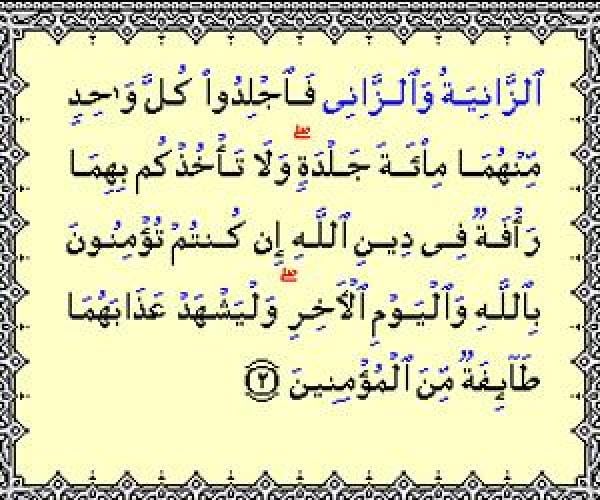 ٱلزَّانِيَةُ وَٱلزَّانِى فَٱجْلِدُوا۟ كُلَّ وَٰحِدٍ
مِّنْهُمَا مِا۟ئَةَ جَلْدَةٍ ۖ وَلَا تَأْخُذْكُم بِهِمَا
رَأْفَةٌ فِى دِينِ ٱللَّهِ إِن كُنتُمْ تُؤْمِنُونَ
بِٱللَّهِ وَٱلْيَوْمِ ٱلْـَٔاخِرِ ۖ وَلْيَشْهَدْ عَذَابَهُمَا
طَآئِفَةٌ مِّنَ ٱلْمُؤْمِنِينَ ٢